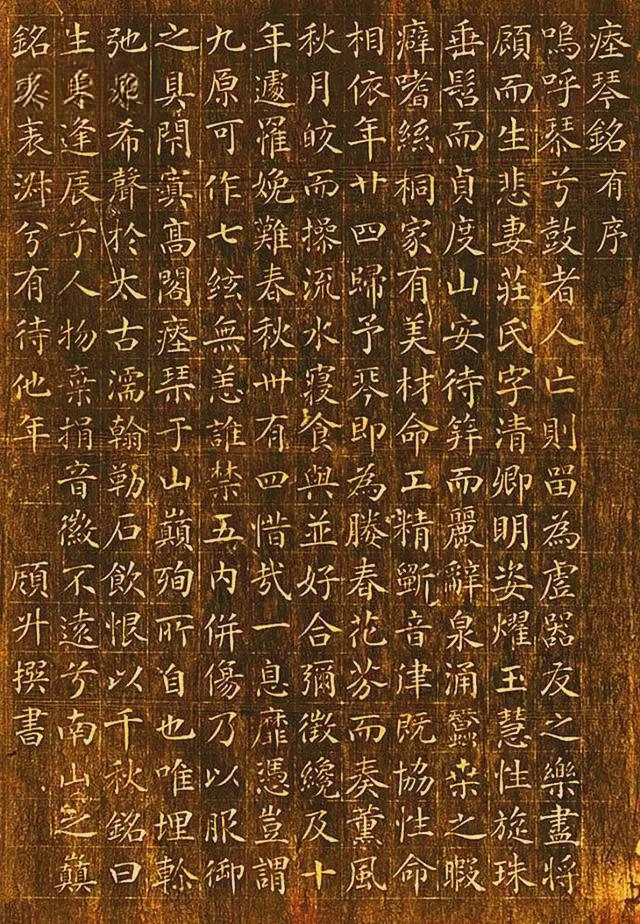 瘞琴銘 有序
嗚呼琴兮鼓者人亡則畱為虛器友之樂盡將
頋而生悲妻莊氏字清卿明姿燿玉慧性旋珠
垂髫而貞度山安待笄而麗辭泉涌蠶桒之暇
癖嗜絲桐家有美材命工精斲音律既協性命
相依年廿四歸予琴即為勝春花芬而奏薰風
秋月皎而操流水寢食與並好合彌徵纔及十
年遽罹娩難春秋卅有四惜哉一息靡憑豈謂
九原可作七絃無恙誰禁五內併傷乃以服御
之具閉寘高閣瘞琹于山巔殉所自也唯埋軫
弛希聲於太古濡翰勒石飲恨以千秋銘曰
生逢辰兮人物棄捐音徽不遠兮南山之巔
銘衷兮有待他年 頋升撰書